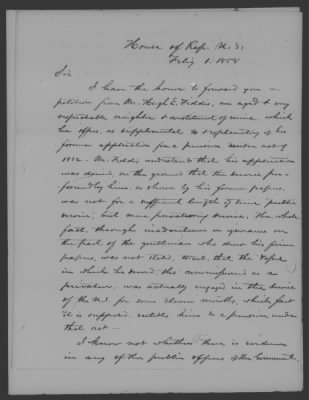 House of Rep. U.S.
Feb'y 1. 1858
Sir
I have the honor to forward you a
petition from Mr. Hugh E. Fiddis, an aged & very
respectable neighbor & constituent of mine, which
he offers, as supplemental & explanatory of his
former application for a pension under act of
1832. Mr. Fiddis understands that his application
was denied, on the ground that the service per-
formed by him, as shown by his former papers,
was not for a sufficient length of time public
service, but mere privateering service. The whole
fact, through inadvertence or ignorance on
the part of the gentleman who drew his former
papers, was not stated, to wit, that the vessel
in which he served, tho' commissioned as a
privateer, was actually engaged in the service
of the U.S. for some eleven months, which fact
it is supposed, entitles him to a pension under
that act —
I know not whether there is evidence
in any of the public offices of the Government,